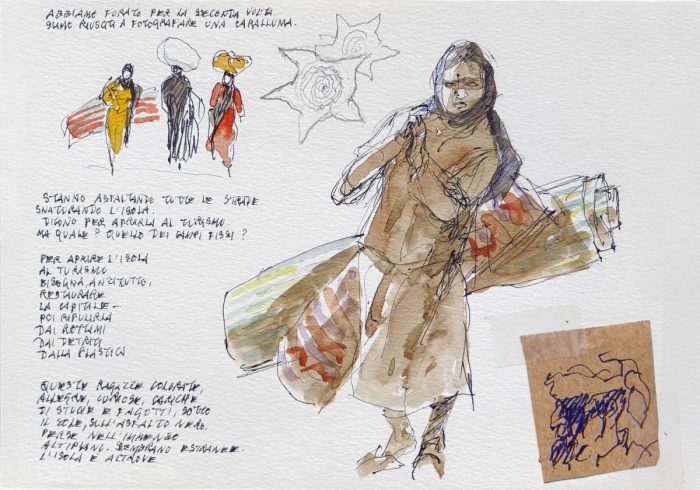 ABBIAMO FORATO PER LA SECONDA VOLTA
SIAMO RIUSCITI A FOTOGRAFARE UNA CARALLUMA.
STANNO ASFALTANDO TUTTE LE STRADE
SNATURANDO L'ISOLA.
DICONO PER APRIRLA AL TURISMO
MA QUALE? QUELLO DEI CAMPI FISSI?
PER APRIRE L'ISOLA
AL TURISMO
BISOGNA, ANZITUTTO,
RESTAURARE
LA CAPITALE -
POI RIPULIRLA
DAI ROTTAMI
DAI DETRITI
DALLA PLASTICA
QUESTE RAGAZZE COLORATE,
ALLEGRE, CURIOSE, CARICHE
DI STUOIE E FAGOTTI, SOTTO
IL SOLE, SULL'ASFALTO NERO.
PERSE NELL'IMMENSO
ALTIPIANO. SEMBRANO ESTRANEE.
L'ISOLA E ALTROVE